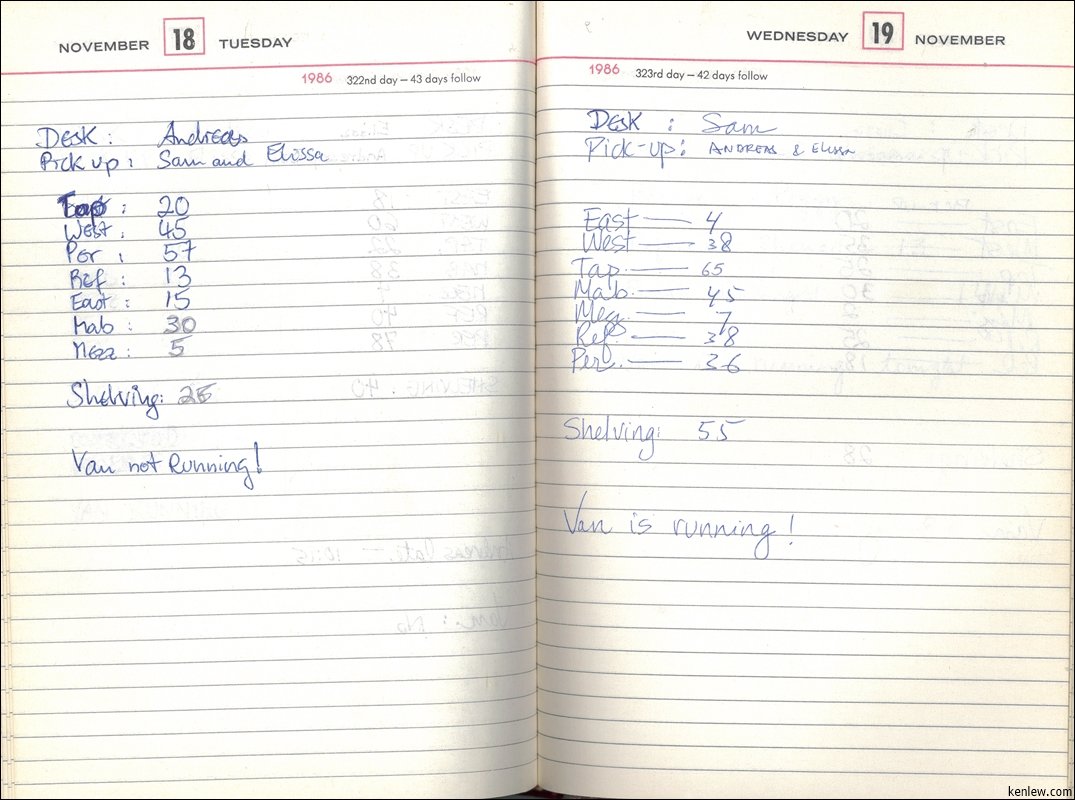 NOVEMBER 18 TUESDAY
1986 322nd day — 43 days follow
DESK : Andreas
Pick up : Sam and Elissa
Tap : 20
West : 45
Per : 57
Ref : 13
East : 15
Mab : 30
Mezz : 5
Shelving: 25
Van not Running!
WEDNESDAY 19 NOVEMBER
1986 323rd day — 42 days follow
DESK : Sam
Pick-up: ANDREAS & Elissa
East — 4
West — 38
Tap. — 65
Mab. — 45
Mez. — 7
Ref. — 38
Per. — 36
Shelving: 55
Van is running!
kenlew.com